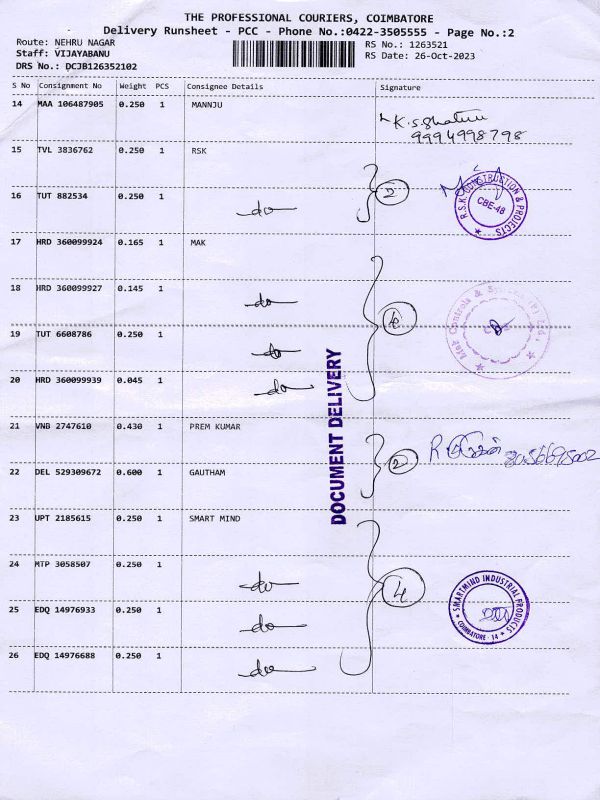 THE PROFESSIONAL COURIERS, COIMBATORE
Delivery Runsheet - PCC - Phone No.:0422-3505555 - Page No.:2
Route: NEHRU NAGAR
RS No.: 1263521
Staff: VIJAYABANU
RS Date: 26-Oct-2023
DRS No.: DCJB126352102
S No Consignment No Weight PCS Consignee Details Signature
14 MAA 106487905 0.250 1 MANNJU
9994998798
15 TVL 3836762 0.250 1 RSK
16 TUT 882534 0.250 1 -do- 2
R.S.K. CONSTRUCTION & PROJECTS
CBE-48
17 HRD 360099924 0.165 1 MAK
18 HRD 360099927 0.145 1 -do-
19 TUT 6608786 0.250 1 -do-
20 HRD 360099939 0.045 1 -do-
DOCUMENT DELIVERY
21 VNB 2747610 0.430 1 PREM KUMAR
22 DEL 529309672 0.600 1 GAUTHAM
2
23 UPT 2185615 0.250 1 SMART MIND
24 MTP 3058507 0.250 1 -do- 4
SMARTMIND INDUSTRIAL PRODUCTS
COIMBATORE - 14
25 EDQ 14976933 0.250 1 -do-
26 EDQ 14976688 0.250 1 -do-